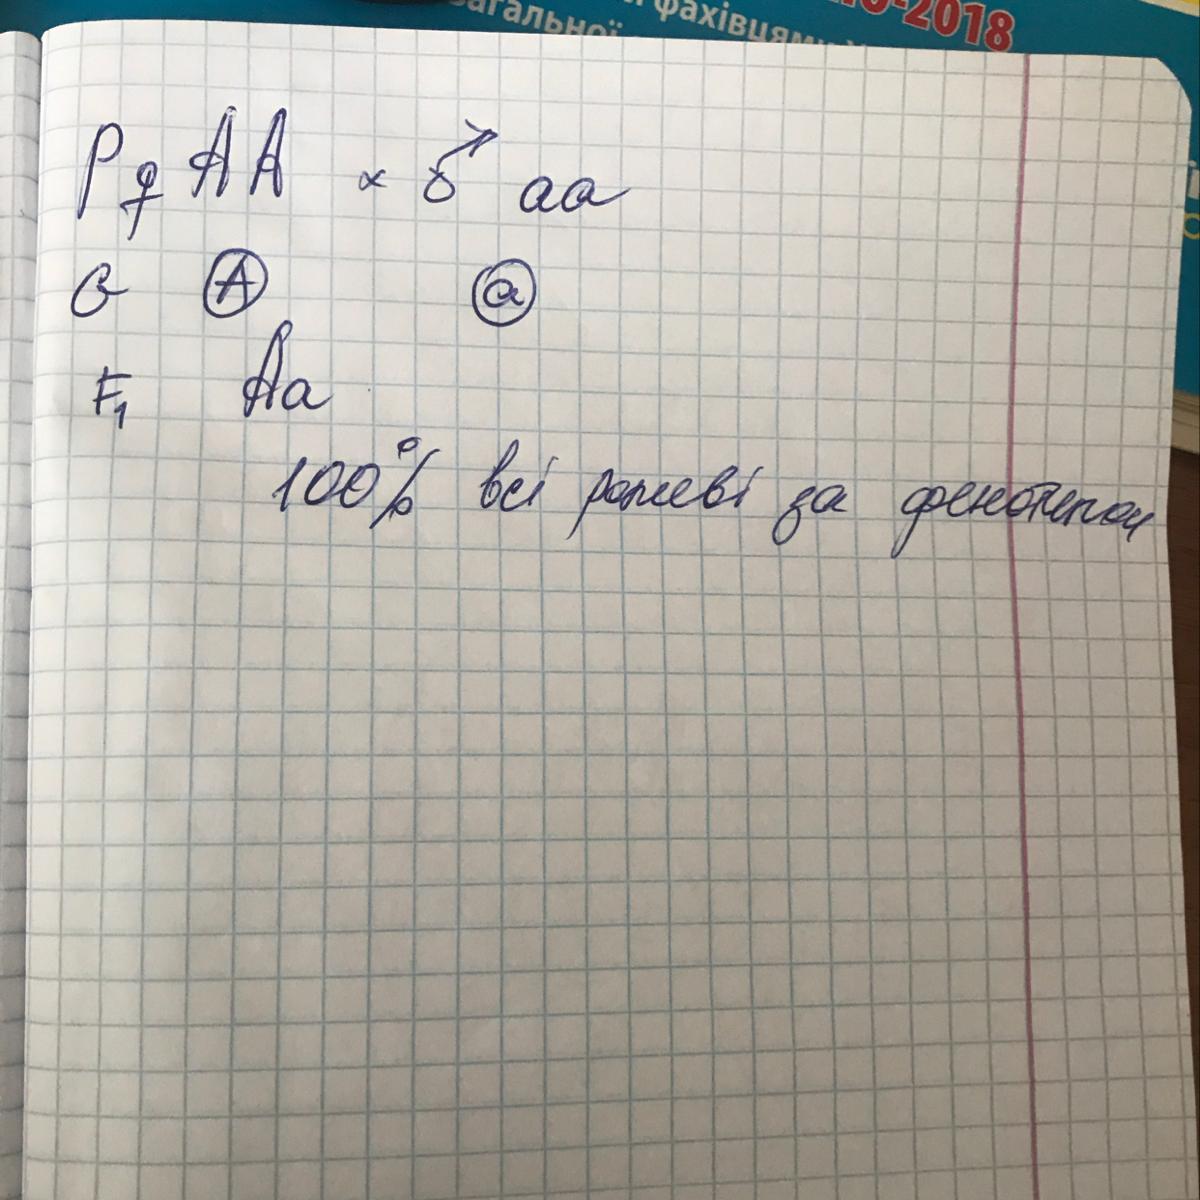 О-2018
и фахівцями У
загальної
P ♀ AA × ♂ aa
G A a
F₁ Aa
100% всі рожеві за фенотипом